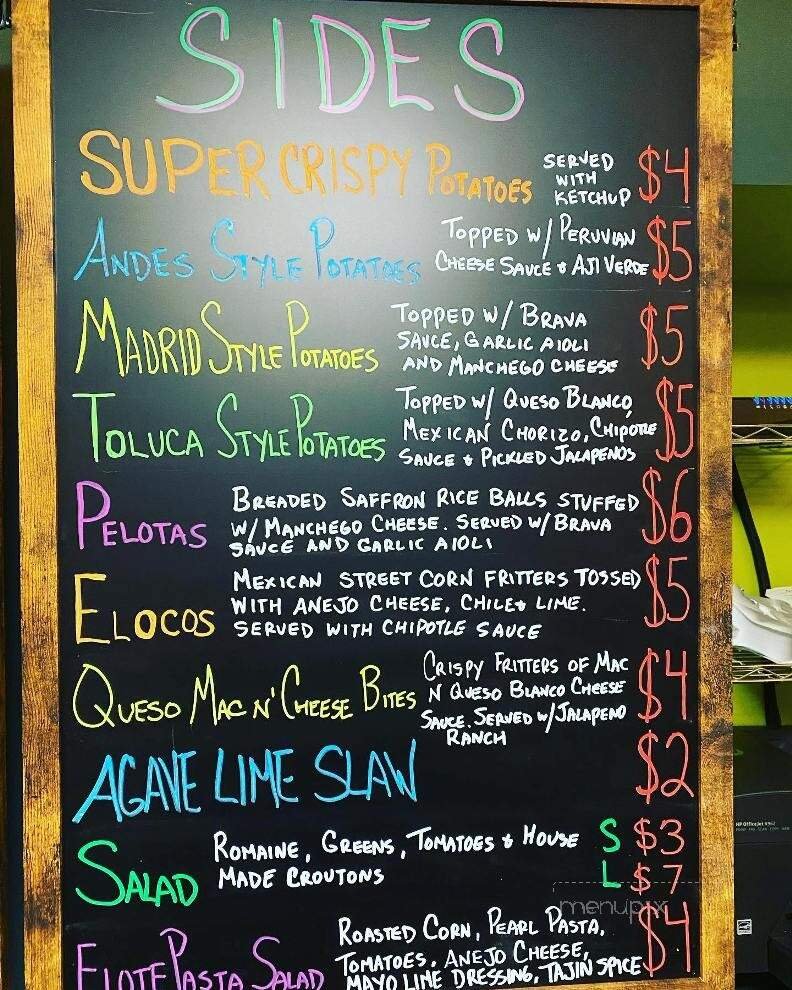 SIDES
SUPER CRISPY POTATOES
SERVED
WITH
KETCHUP
$4
ANDES STYLE POTATOES
TOPPED W/ PERUVIAN
CHEESE SAUCE & AJI VERDE
$5
MADRID STYLE POTATOES
TOPPED W/ BRAVA
SAUCE, GARLIC AIOLI
AND MANCHEGO CHEESE
$5
TOLUCA STYLE POTATOES
TOPPED W/ QUESO BLANCO,
MEXICAN CHORIZO, CHIPOTLE
SAUCE & PICKLED JALAPENOS
$5
PELOTAS
BREADED SAFFRON RICE BALLS STUFFED
W/ MANCHEGO CHEESE. SERVED W/ BRAVA
SAUCE AND GARLIC AIOLI
$6
ELOCOS
MEXICAN STREET CORN FRITTERS TOSSED
WITH ANEJO CHEESE, CHILE & LIME.
SERVED WITH CHIPOTLE SAUCE
$5
QUESO MAC N' CHEESE BITES
CRISPY FRITTERS OF MAC
N QUESO BLANCO CHEESE
SAUCE. SERVED W/ JALAPENO
RANCH
$4
AGAVE LIME SLAW
$2
SALAD
ROMAINE, GREENS, TOMATOES & HOUSE
MADE CROUTONS
S $3
L $7
menupix
ELOTE PASTA SALAD
ROASTED CORN, PEARL PASTA,
TOMATOES, ANEJO CHEESE,
MAYO LIME DRESSING, TAJIN SPICE
$4